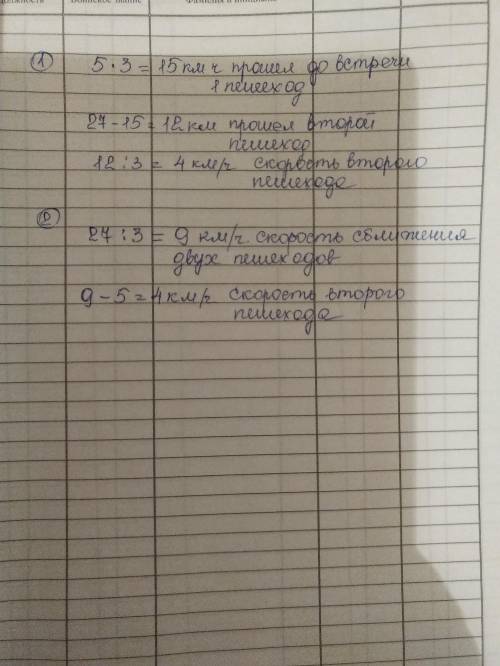 должность Воинское звание Фамилия и инициалы
1 5 · 3 = 15 км ч прошел до встречи
1 пешеход
27 - 15 = 12 км прошел второй
пешеход
12 : 3 = 4 км/ч скорость второго
пешехода
2
27 : 3 = 9 км/ч скорость сближения
двух пешеходов
9 - 5 = 4 км/ч скорость второго
пешехода